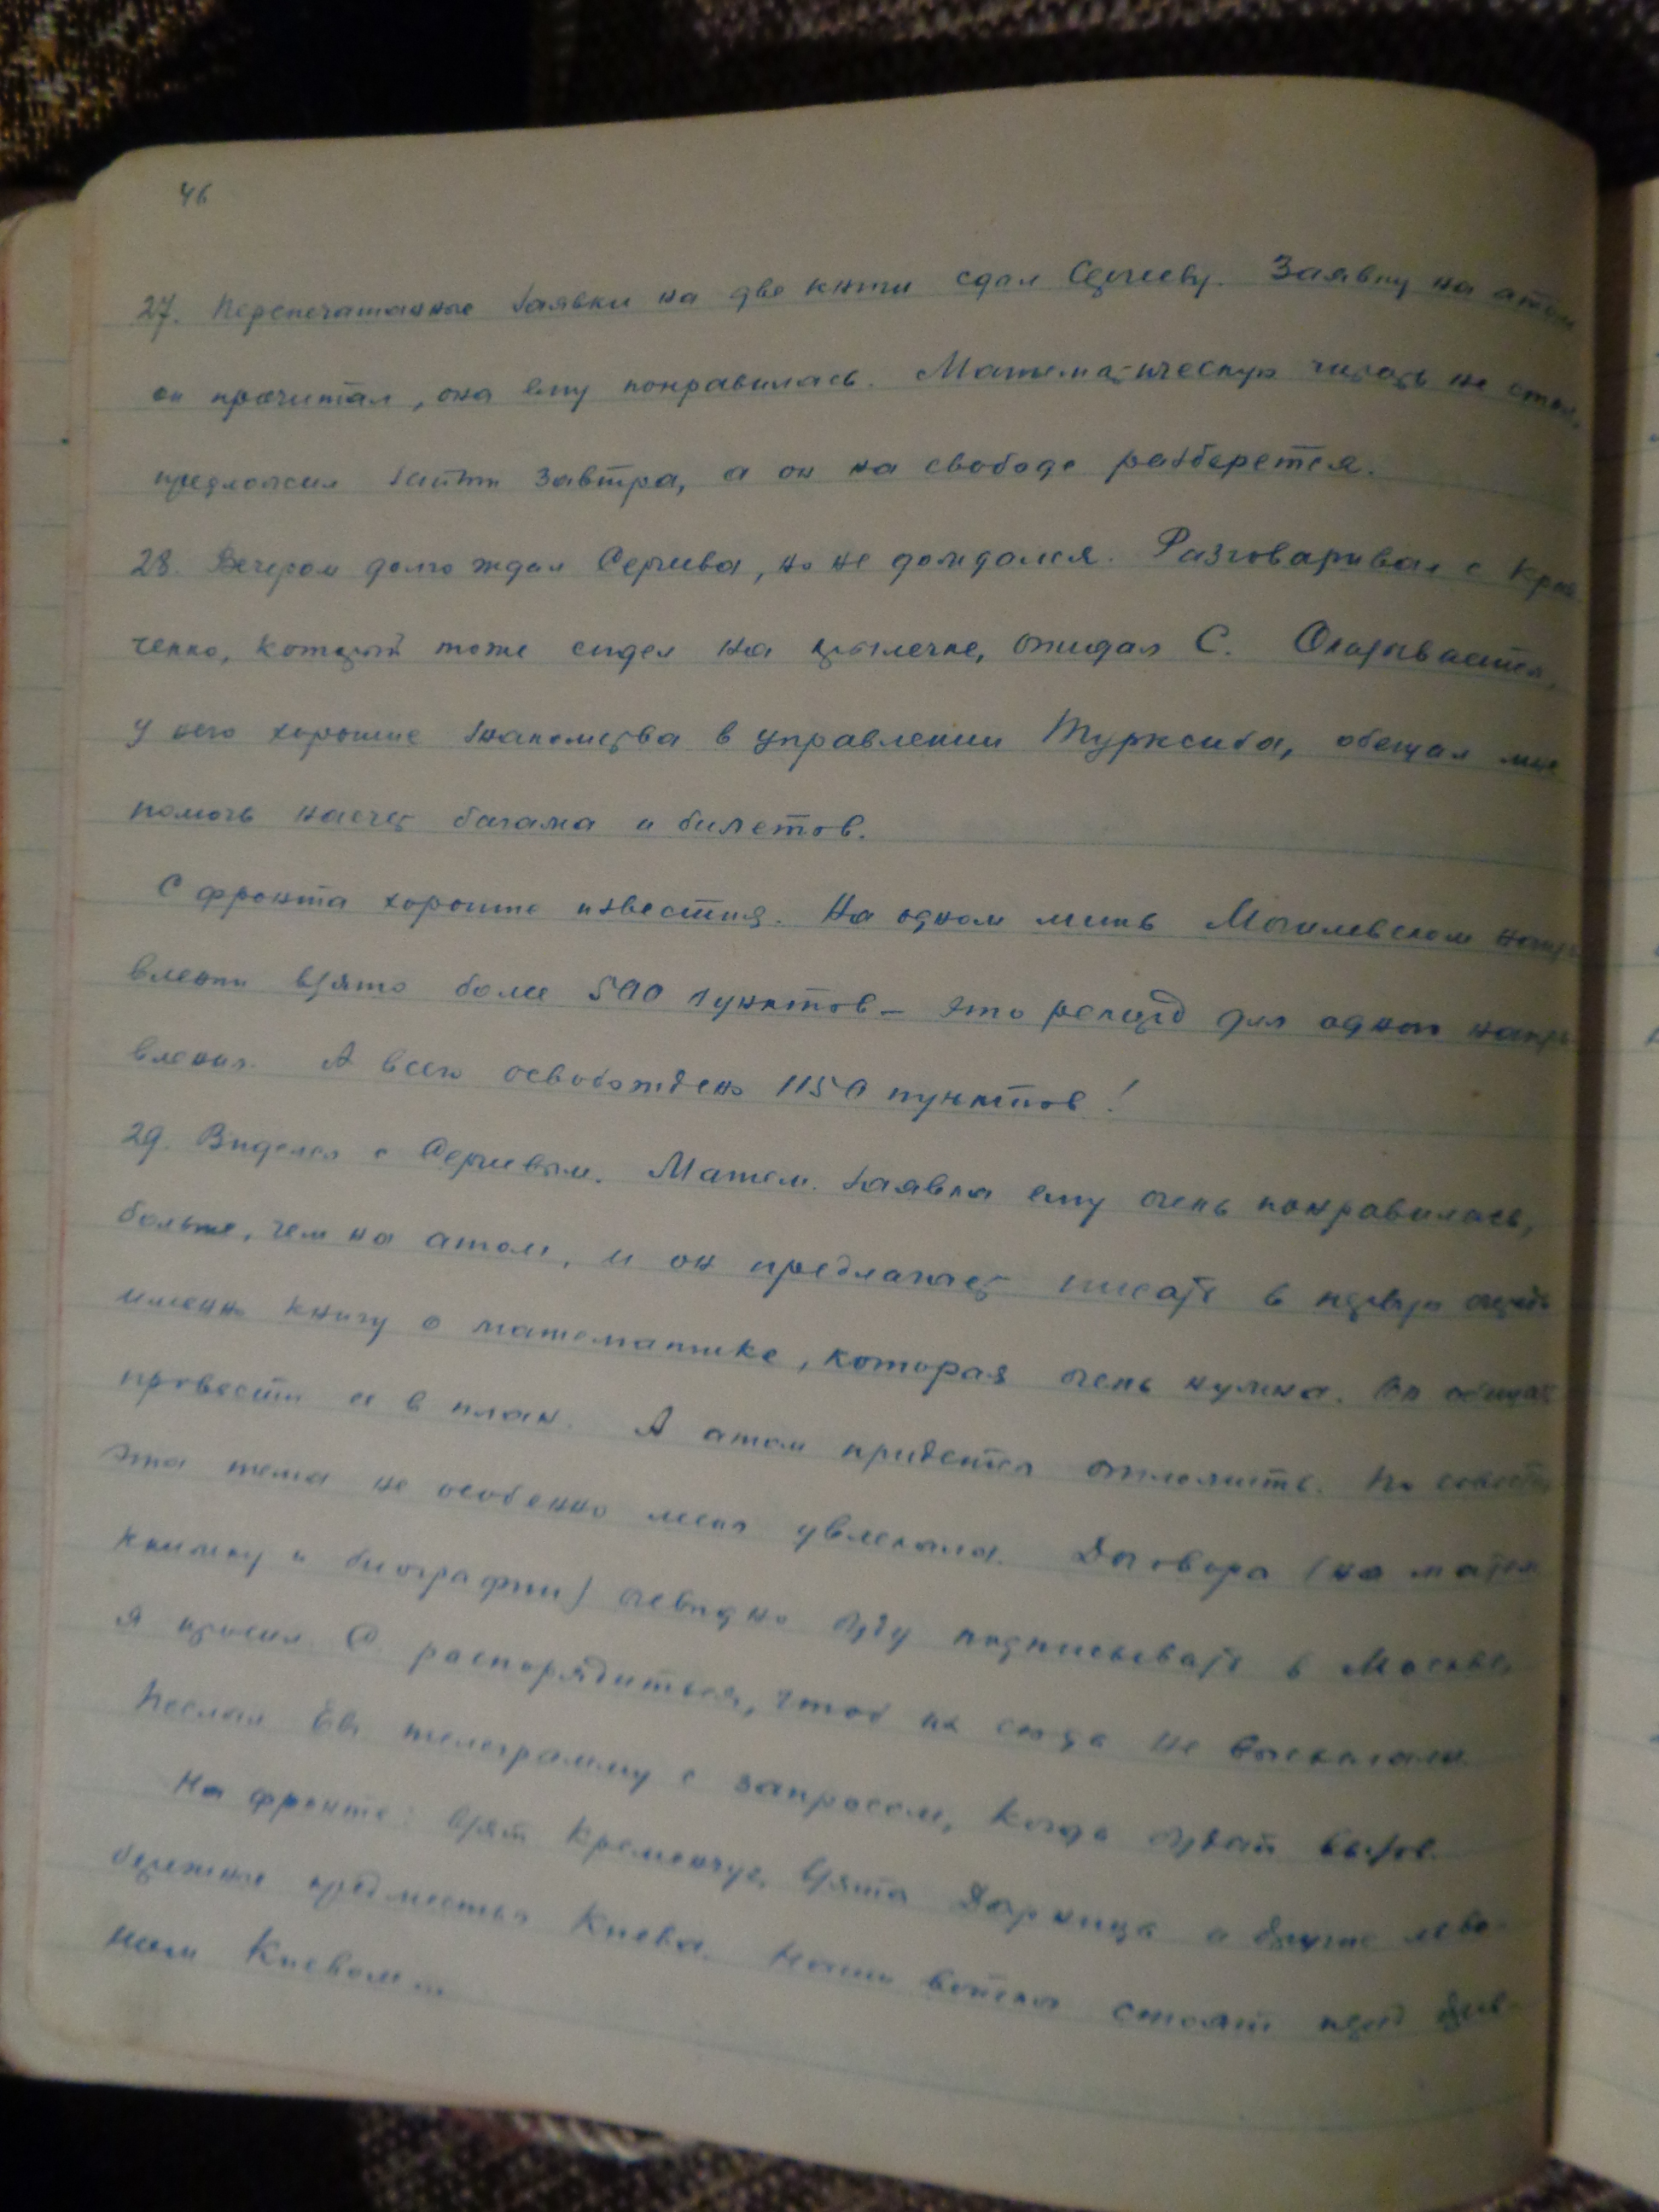 46
27. Перепечатанные заявки на две книги сдал Сергееву. Заявку на атом
он прочитал, она ему понравилась. Математическую читать не стал,
предложил зайти завтра, а он на свободе разберется.
28. Вечером долго ждал Сергеева, но не дождался. Разговаривал с Крав-
ченко, который тоже сидел на крылечке, ожидая С. Оказывается,
у него хорошие знакомства в управлении Турксиба, обещал мне
помочь насчет багажа и билетов.
С фронта хорошие известия. На одном лишь Могилевском напра-
влении взято более 500 пунктов – это рекорд для одного напра-
вления. А всего освобождено 1150 пунктов!
29. Виделся с Сергеевым. Матем. заявка ему очень понравилась,
больше, чем на атом, и он предлагает писать в первую очередь
именно книгу о математике, которая очень нужна. Он обещает
провести ее в план. А атом придется отложить. По совести,
эта тема не особенно меня увлекала. Договора (на матем
книжку и биографии) очевидно буду подписывать в Москве,
я просил С. распорядиться, чтоб их сюда не высылали.
Послал Ев. телеграмму с запросом, когда будет вызов.
На фронте: взят Кременчуг, взята Дарница и другие лево-
бережные предместья Киева. Наши войска стоят перед
Киевом...